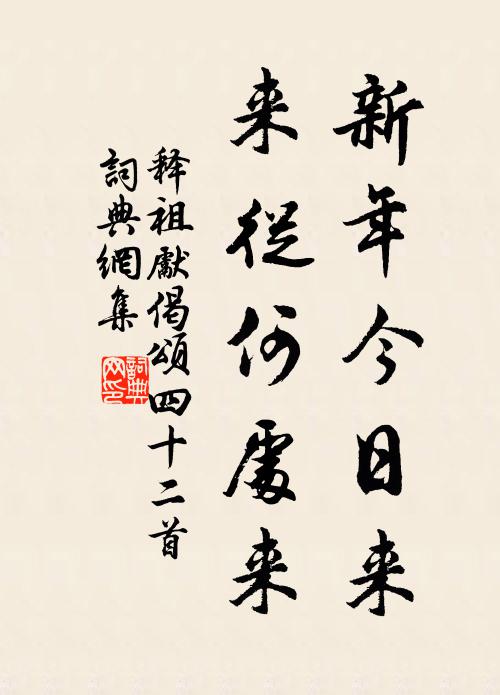 新年今日来
来從何處来
释祖獻偈頌四十二首
詞典網集
詞典
网印